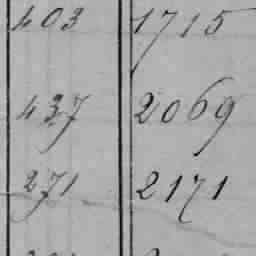 403 1715
437 2069
271 2171